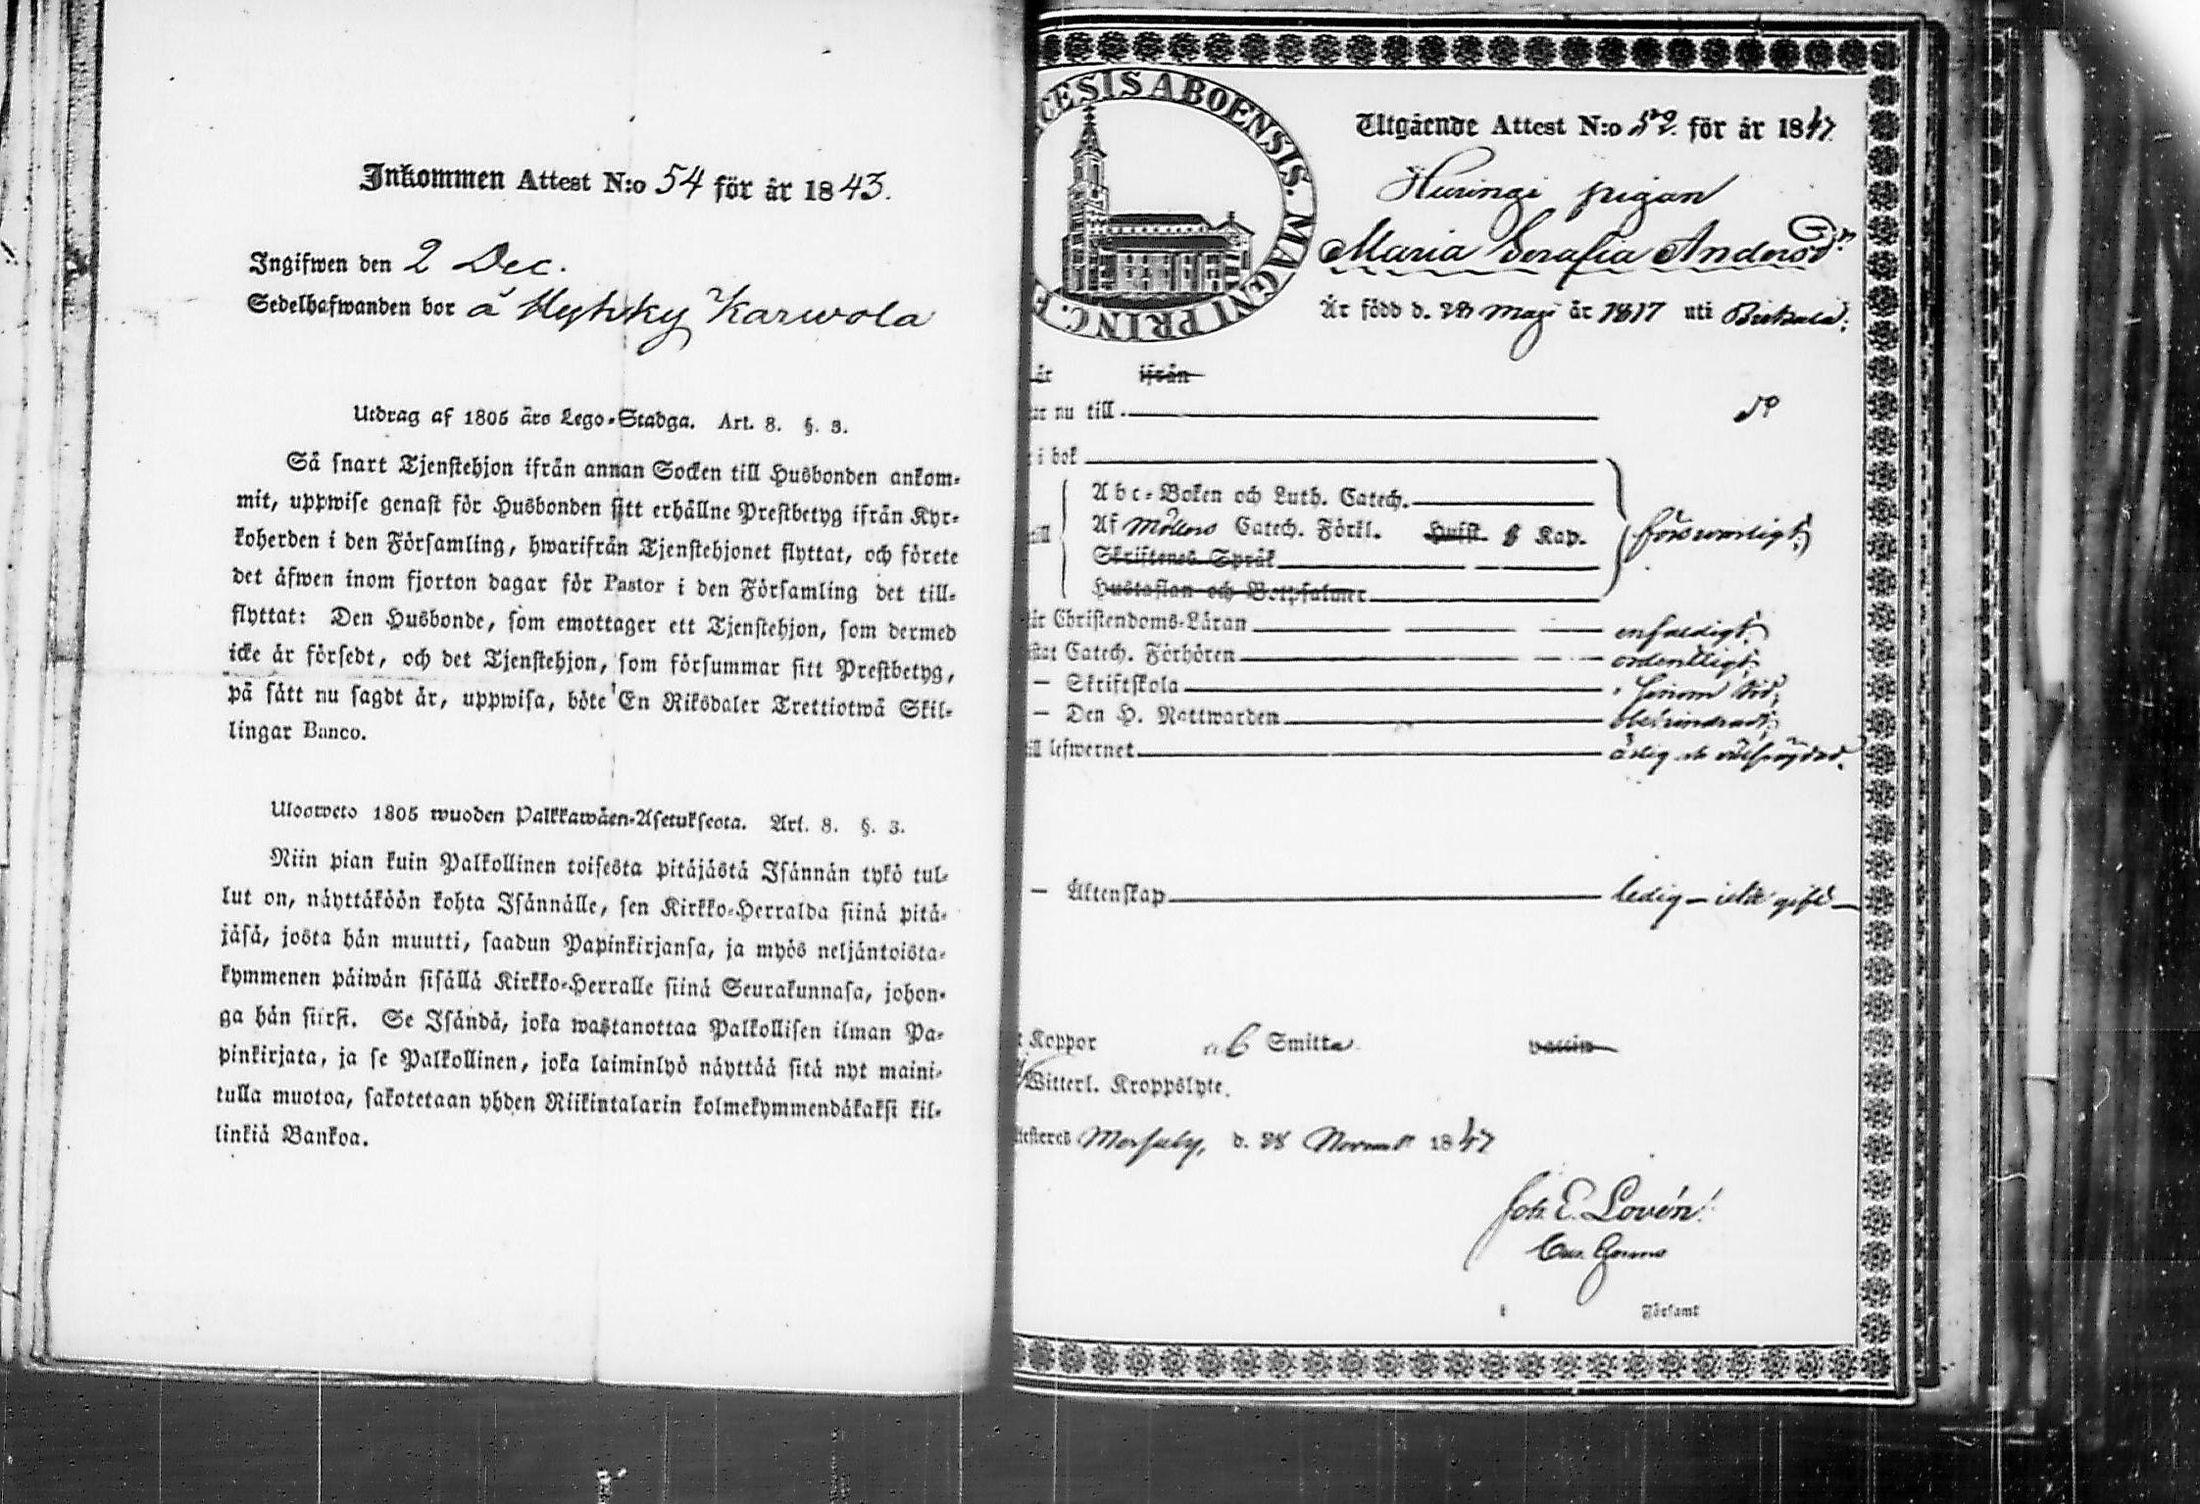 Inkommen Attest N:o 54 för år 1843.
Ingifwen den 2 Dec.
Sedelhafwanden bor å Hyhky Karwola
Utdrag af 1805 års Lego-Stadga. Art. 8. §. 3.
Så snart Tjenstehjon ifrån annan Socken till Husbonden ankom-
mit, uppwise genast för Husbonden sitt erhållne Prestbetyg ifrån Kyr-
koherden i den Församling, hwarifrån Tjenstehjonet flyttat, och förete
det äfwen inom fjorton dagar för Pastor i den Församling det till-
flyttat: Den Husbonde, som emottager ett Tjenstehjon, som dermed
icke är försedt, och det Tjenstehjon, som försummar sitt Prestbetyg,
på sätt nu sagdt är, uppwisa, böte En Riksdaler Trettiotwå Skil-
lingar Banco.
Ulosweto 1805 wuoden Palkkawäen-Asetuksesta. Art. 8. §. 3.
Niin pian kuin Palkollinen toisesta pitäjästä Isännän tykö tul-
lut on, näyttäköön kohta Isännälle, sen Kirkko-Herralda siinä pitä-
jäsä, josta hän muutti, saadun Papinkirjansa, ja myös neljäntoista-
kymmenen päiwän sisällä Kirkko-Herralle siinä Seurakunnasa, johon-
ga hän siirsi. Se Isändä, joka wastanottaa Palkollisen ilman Pa-
pinkirjata, ja se Palkollinen, joka laiminlyö näyttää sitä nyt maini-
tulla muotoa, sakotetaan yhden Riikintalarin kolmekymmendäkaksi kil-
linkiä Bankoa.
CESIS ABOENSIS. MAGNI PRINC. F
Utgående Attest N:o 52. för år 1847.
pigan
Maria Serafia Andersdr
Är född d. 28 Maji år 1817 uti Birkala;
år ifrån
nu till
i bok
Abc-Boken och Luth. Catech.
Af Möllers Catech. Förkl. Hufst. 8 Kap. försvarligt;
Skriftenes Språk
Hustaflan och Botpsalmer
Christendoms-Läran enfaldigt;
Catech. Förhören ordentligt;
– Skriftskola
– Den H. Nattwarden obehindrad;
lefwernet ärlig och välfrägdad.
– Äktenskap ledig – icke gift –
Koppor Smitta vaccin
Witterl. Kroppslyte.
d. 28 Novembr 1847
Joh. E. Lovén.
Församl